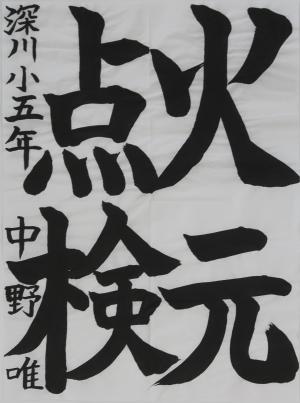 火元
点検
深川小五年 中野唯